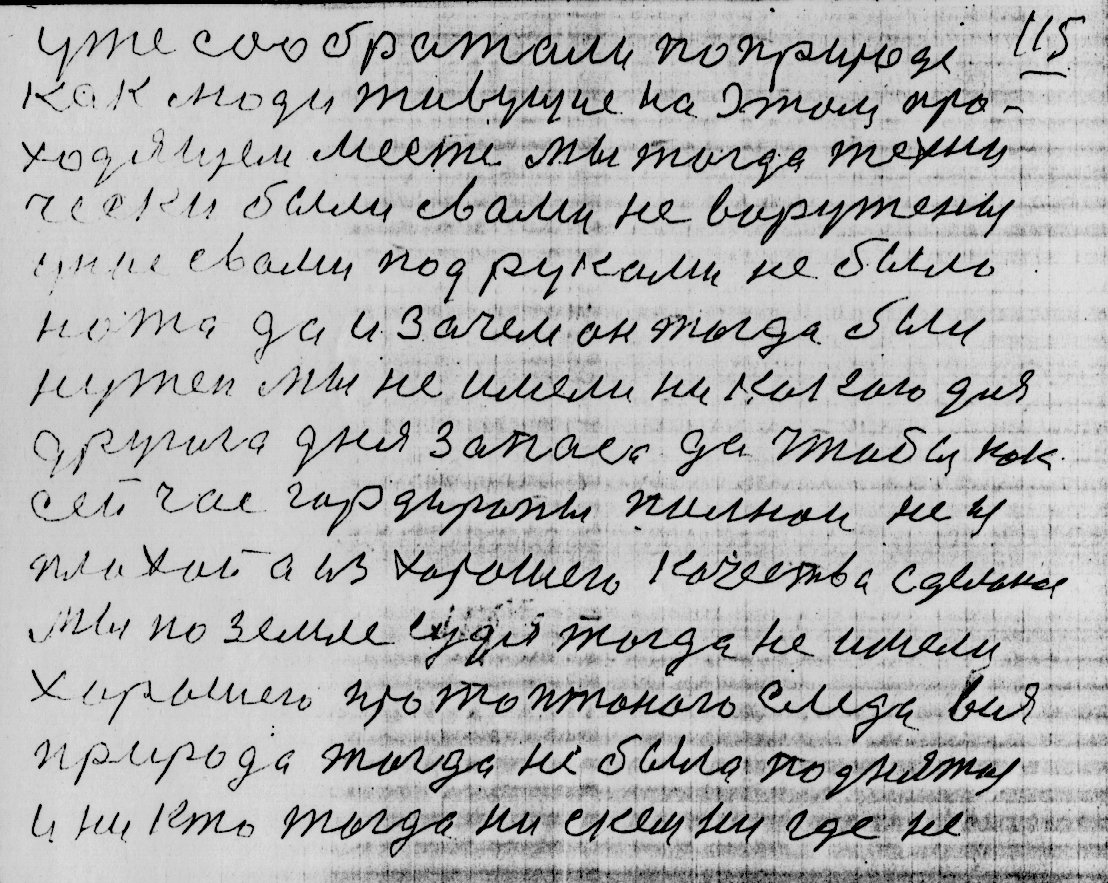 уже соображали по природе 115
как люди живущие на этом про-
ходящем месте мы тогда техни
чески были свами не воружены
у нас свами под руками не было
ножа да и зачем он тогда был
нужен мы не имели никакого для
другога дня запаса да чтобы как
сейчас гардиропы пилном не и
плохой а из хорошего качества сделаное
мы по земле судя тогда не имели
хорошего протоптоного следа вся
природа тогда не была подняты
и ни кто тогда ни скем ни где не